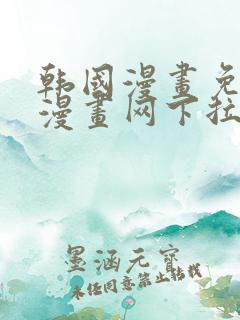 韩国漫畫免
漫畫网下拉
墨涵元寶
未经同意禁止转载